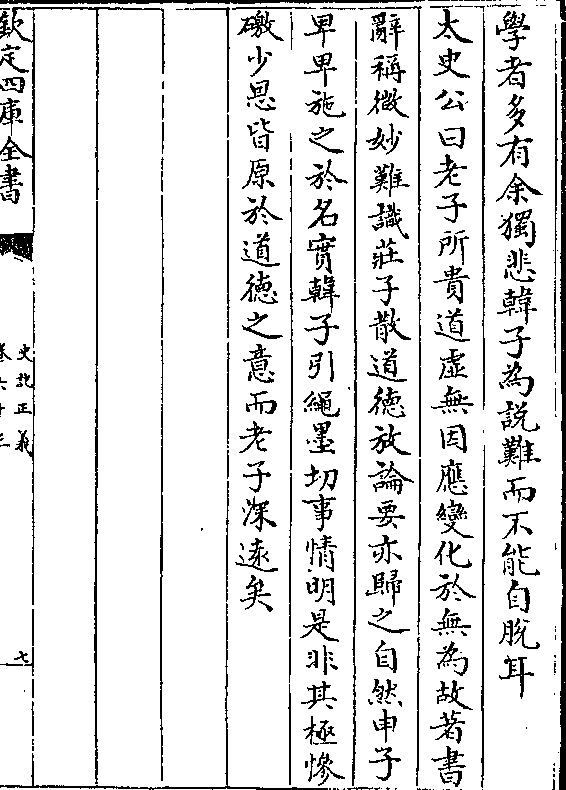 學者多有余獨悲韓子為說難而不能自脫耳
太史公曰老子所貴道虛無因應變化於無為故著書
辭稱微妙難識莊子散道德放論要亦歸之自然申子
卑卑施之於名實韓子引繩墨切事情明是非其極慘
礉少恩皆原於道德之意而老子深遠矣
欽定四庫全書
史記正義
卷六十三
七